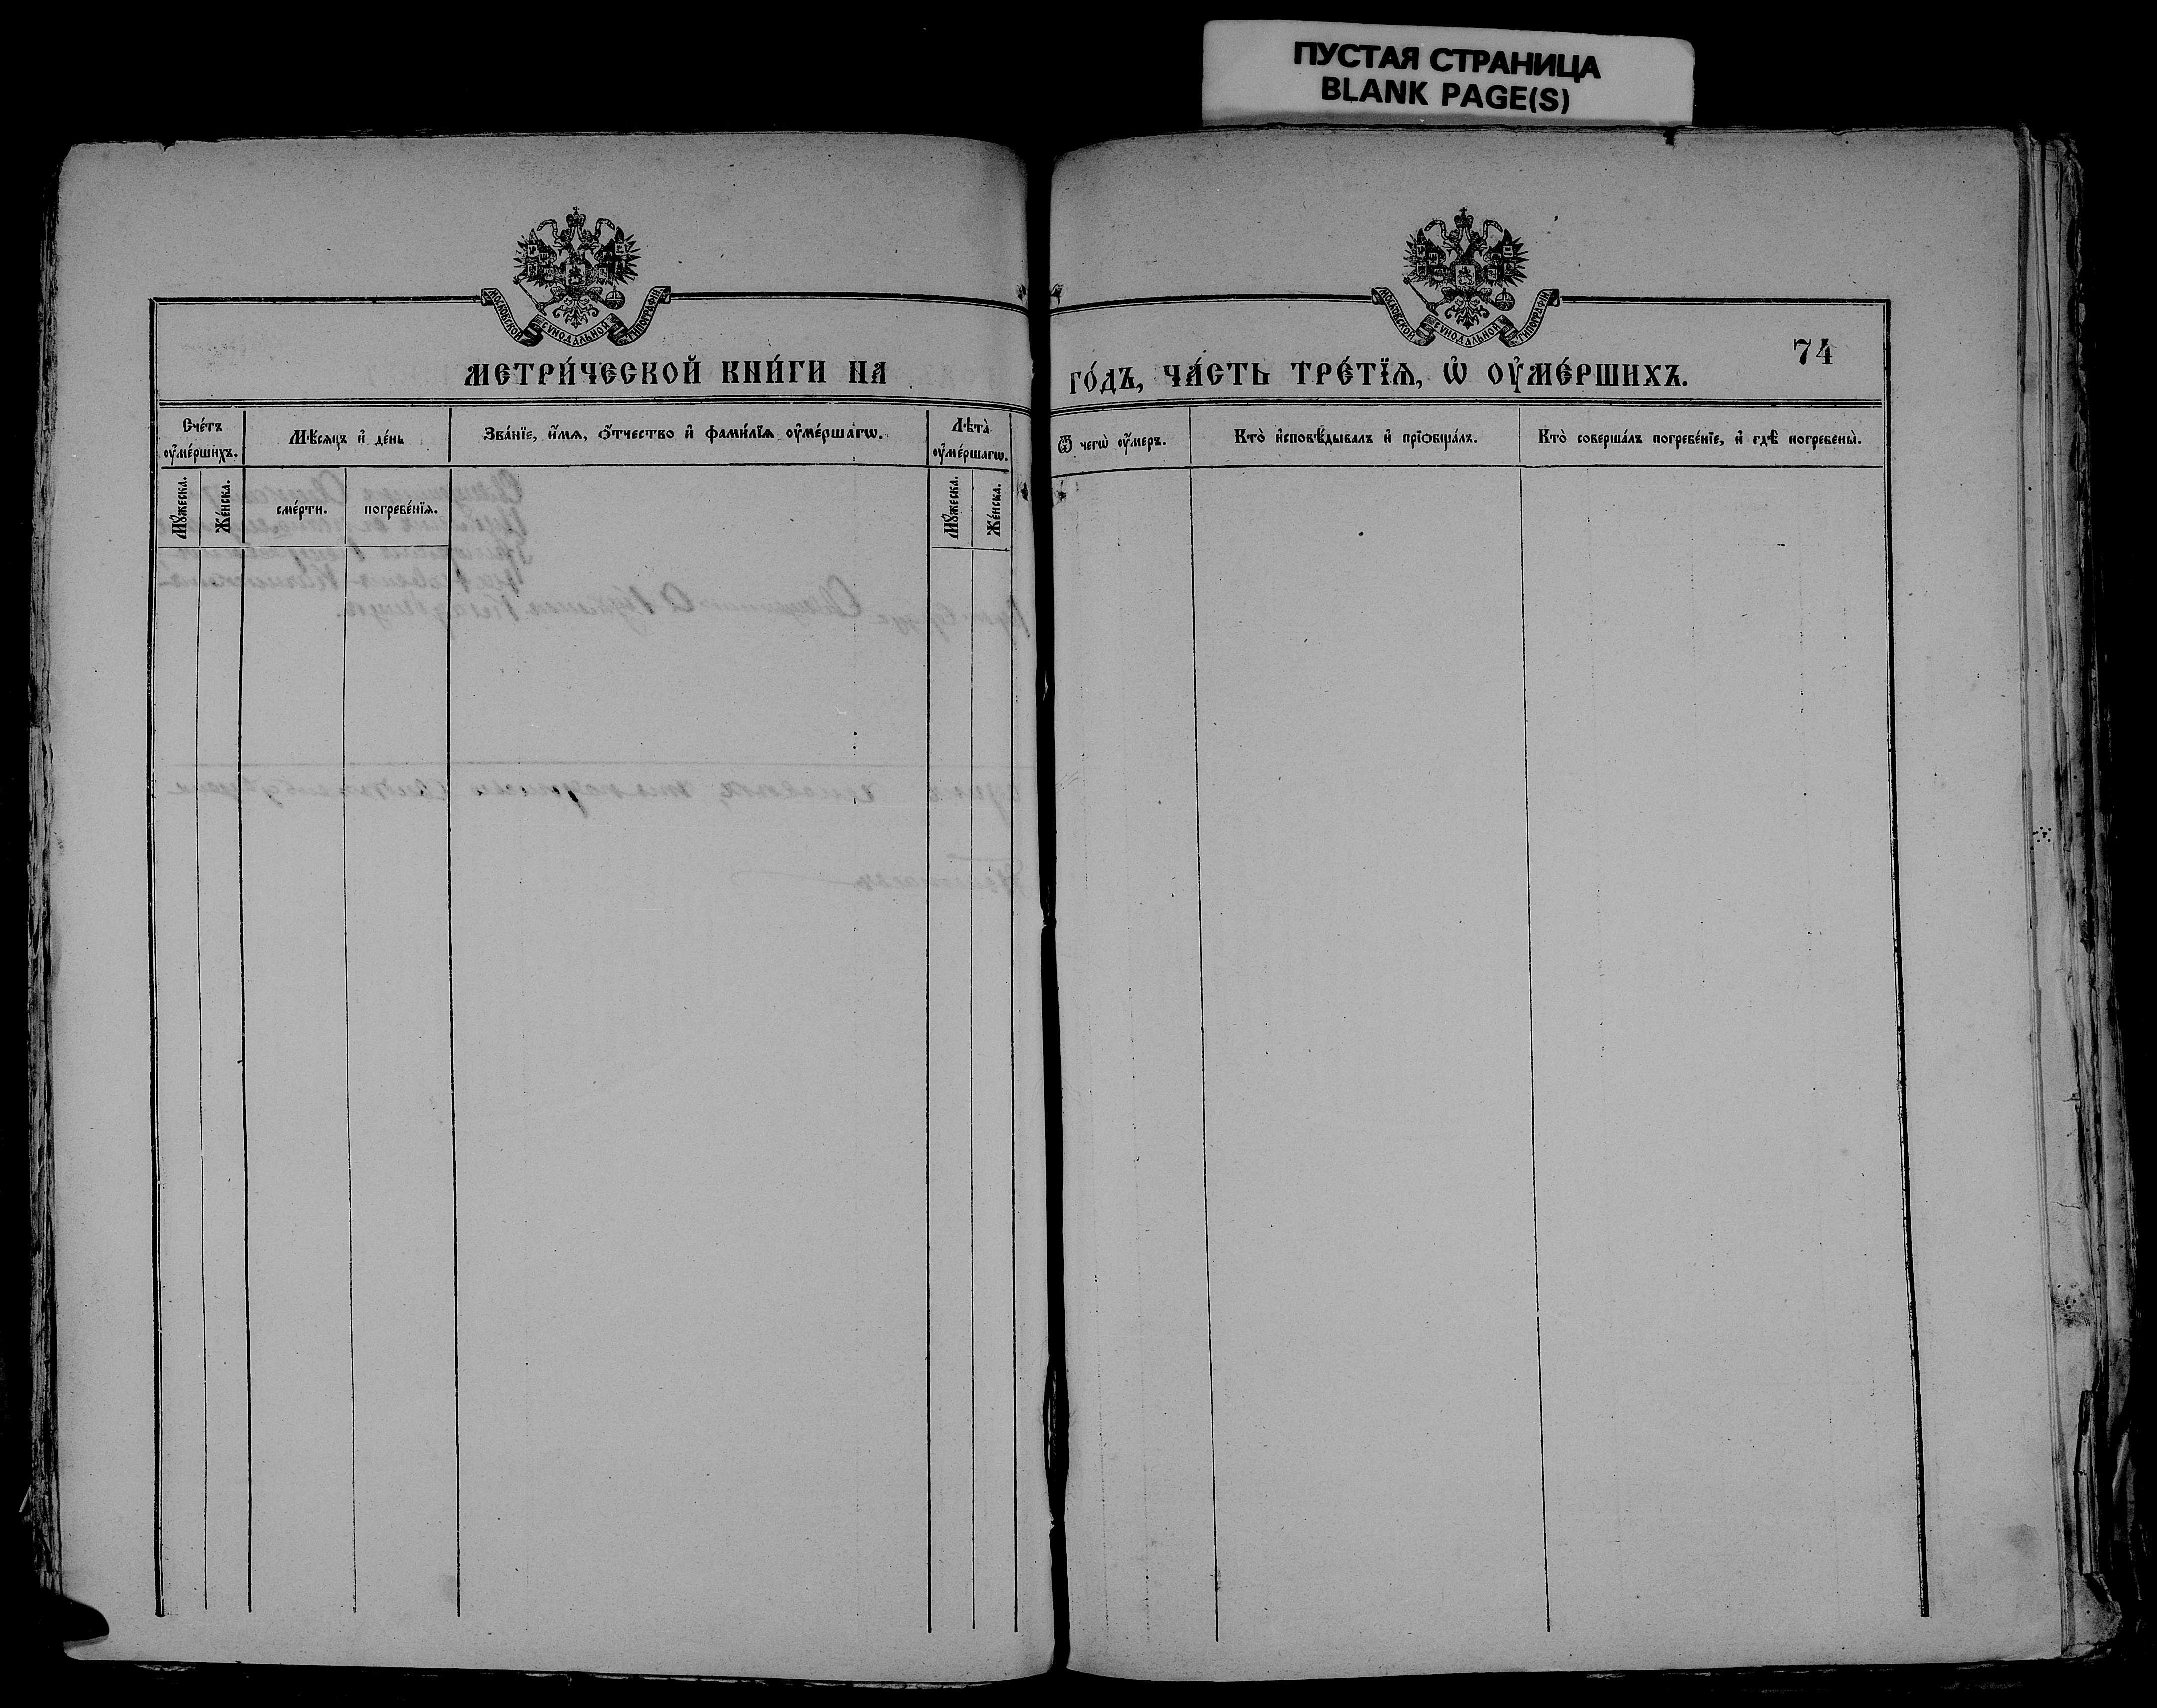 ПУСТАЯ СТРАНИЦА
BLANK PAGE(S)
МОСКОВСКОЙ СѴНОДАЛЬНОЙ ТИПОГРАФІИ
МОСКОВСКОЙ СѴНОДАЛЬНОЙ ТИПОГРАФІИ
74
МЕТРИ́ЧЕСКОЙ КНИ́ГИ НА
ГО́ДЪ, ЧА́СТЬ ТРЕ́ТЇѦ, Ѡ҆ ОУ҆МЕ́РШИХЪ.
Сче́тъ
оу҆ме́ршихъ.
Мѣ́сѧцъ и҆ де́нь
Зва́нїе, и҆́мѧ, ѻ҆́тчество и҆ фами́лїѧ оу҆ме́ршагѡ.
Лѣ́та̀
оу҆ме́ршагѡ.
Ѿ чегѡ̀ оу҆́меръ.
Кто̀ и҆сповѣ́дывалъ и҆ прїѻбща́лъ.
Кто̀ соверша́лъ погребе́нїе, и҆ гдѣ̀ погребены̀.
Мꙋ́жеска.
Же́нска.
сме́рти.
погребе́нїѧ.
Мꙋ́жеска.
Же́нска.